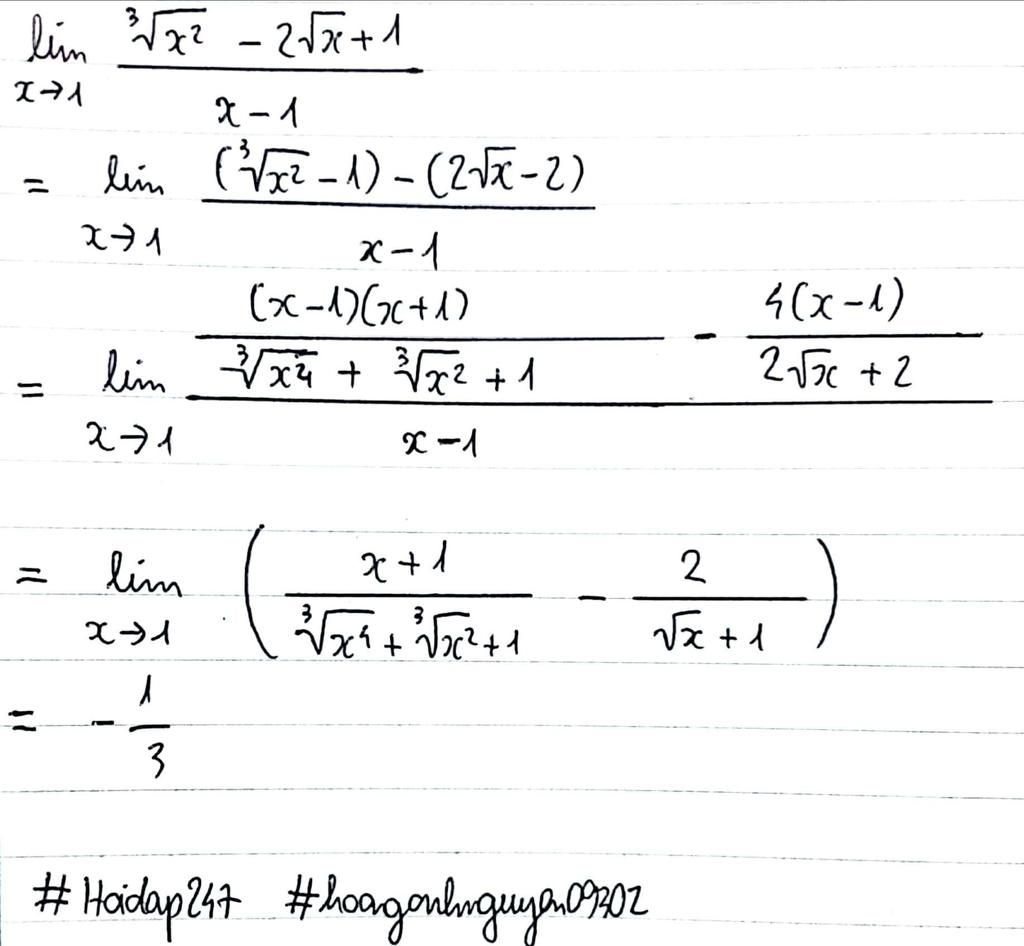 lim_{x→1} \frac{\sqrt[3]{x^2} - 2\sqrt{x} + 1}{x - 1}
= lim_{x→1} \frac{(\sqrt[3]{x^2} - 1) - (2\sqrt{x} - 2)}{x - 1}
= lim_{x→1} \frac{\frac{(x-1)(x+1)}{\sqrt[3]{x^4} + \sqrt[3]{x^2} + 1} - \frac{4(x-1)}{2\sqrt{x} + 2}}{x - 1}
= lim_{x→1} \left( \frac{x+1}{\sqrt[3]{x^4} + \sqrt[3]{x^2} + 1} - \frac{2}{\sqrt{x} + 1} \right)
= - \frac{1}{3}
# Hoidap247